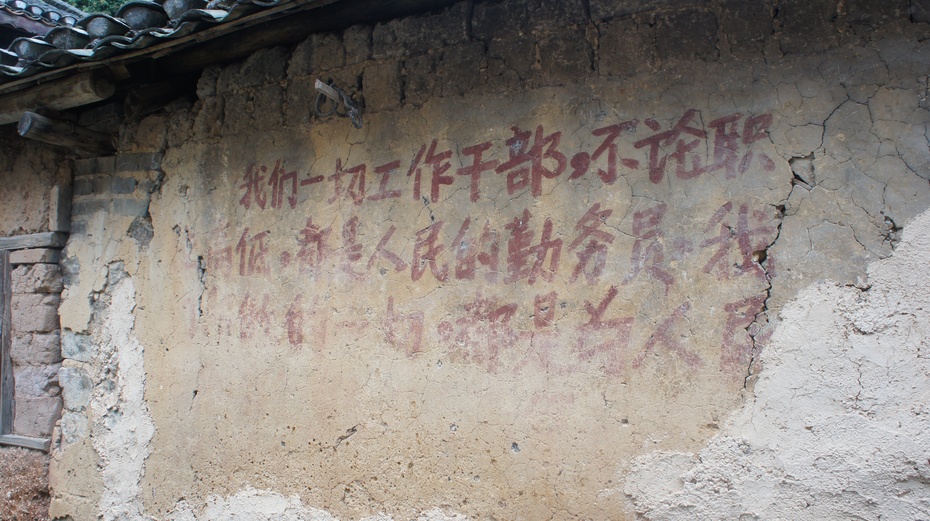 我们一切工作干部，不论职
高低，都是人民的勤务员，我
们做的一切，都是为人民